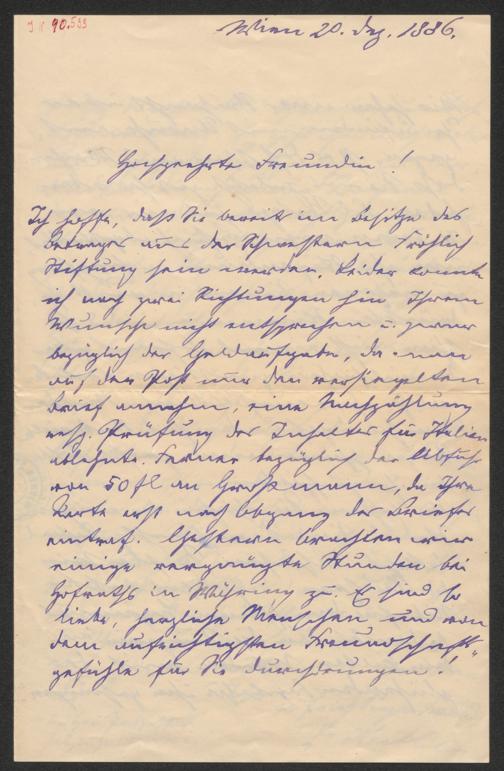 J. N. 90.533
Wien 20. Dez. 1886.
Hochgeehrte Freundin!
Ich hoffe, daß Sie bereits im Besitze des
Betrages aus der Schwestern Fröhlich
Stiftung sein werden. Leider konnte
ich nach zwei Richtungen hin Ihrem
Wunsche nicht entsprechen u. zwar
bezüglich der Geldaufgabe, da man
auf der Post nur den versiegelten
Brief annahm, eine Nachzählung
resp. Prüfung des Inhaltes für Italien
ablehnte. Ferner bezüglich der Abfuhr
von 50 fl an Großmann, da Ihre
Karte erst nach Abgang des Briefes
eintraf. Gestern brachten wir
einige vergnügte Stunden bei
Hofraths in Währing zu. Es sind so
liebe, herzliche Menschen und von
dem aufrichtigsten Freundschafts-
gefühle für Sie durchdrungen!